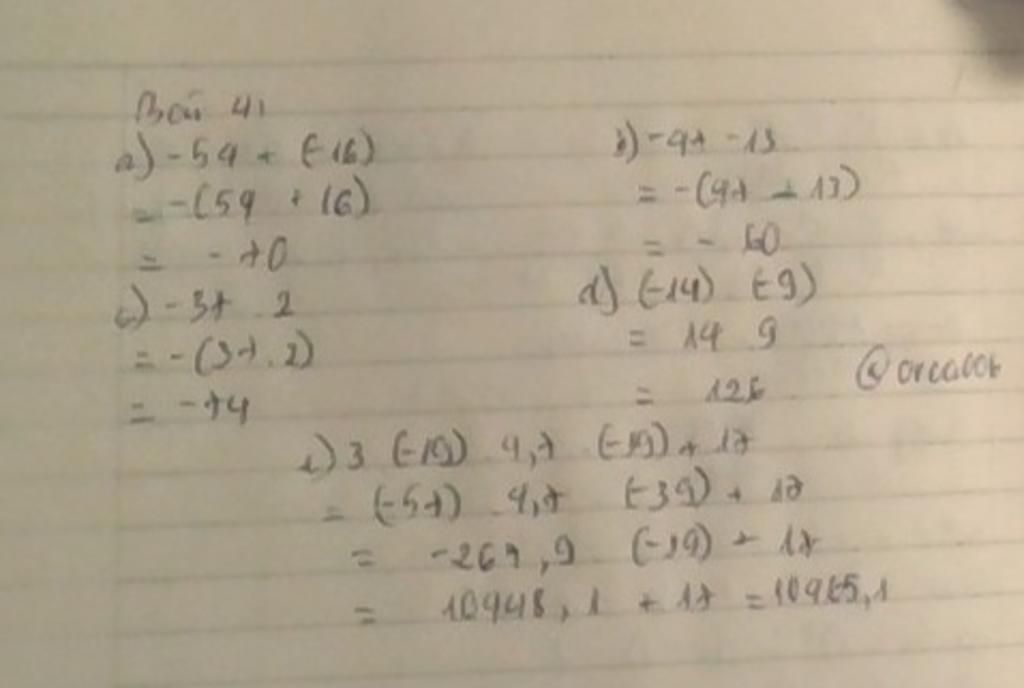 Bài 4:
a) -54 + (-16)
= -(54 + 16)
= -70
b) -47 - 13
= -(47 + 13)
= - 60
c) -37 . 2
= -(37 . 2)
= -74
d) (-14) (-9)
= 14 9
= 126
@orcacor
3 (-19) 4,7 (-39) + 17
= (-57) 4,7 (-39) + 17
= -267,9 (-39) + 17
= 10448,1 + 17 = 10465,1